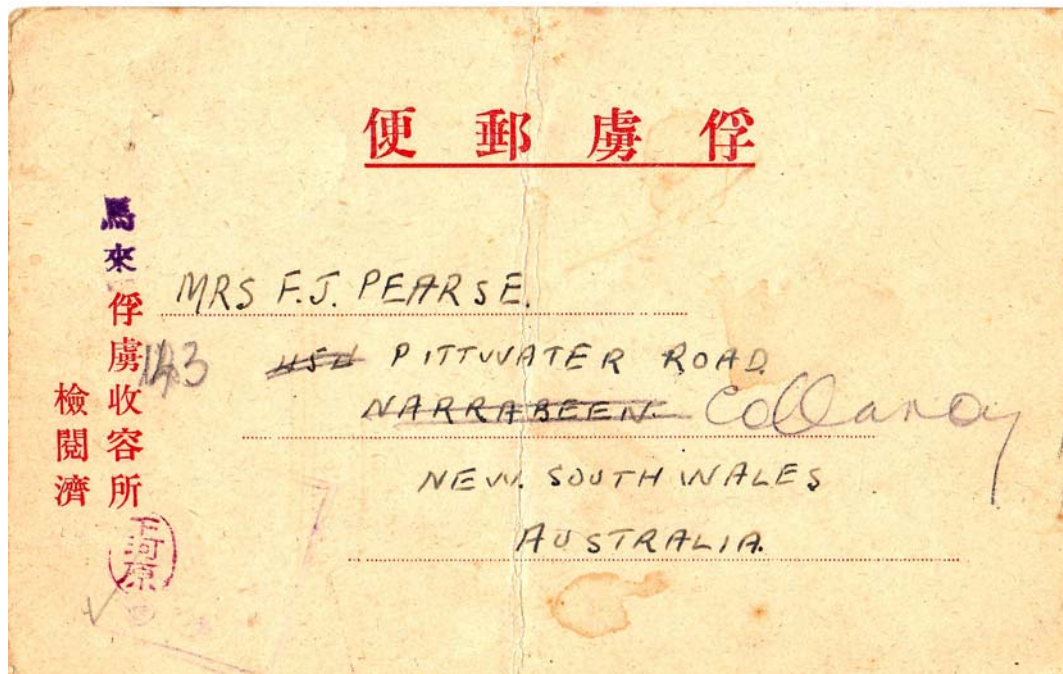 俘虜郵便
馬來
俘虜收容所
檢閱濟
下河原
MRS F.J. PEARSE.
143 PITTWATER ROAD.
NARRABEEN. Collaroy
NEW. SOUTH WALES
AUSTRALIA.